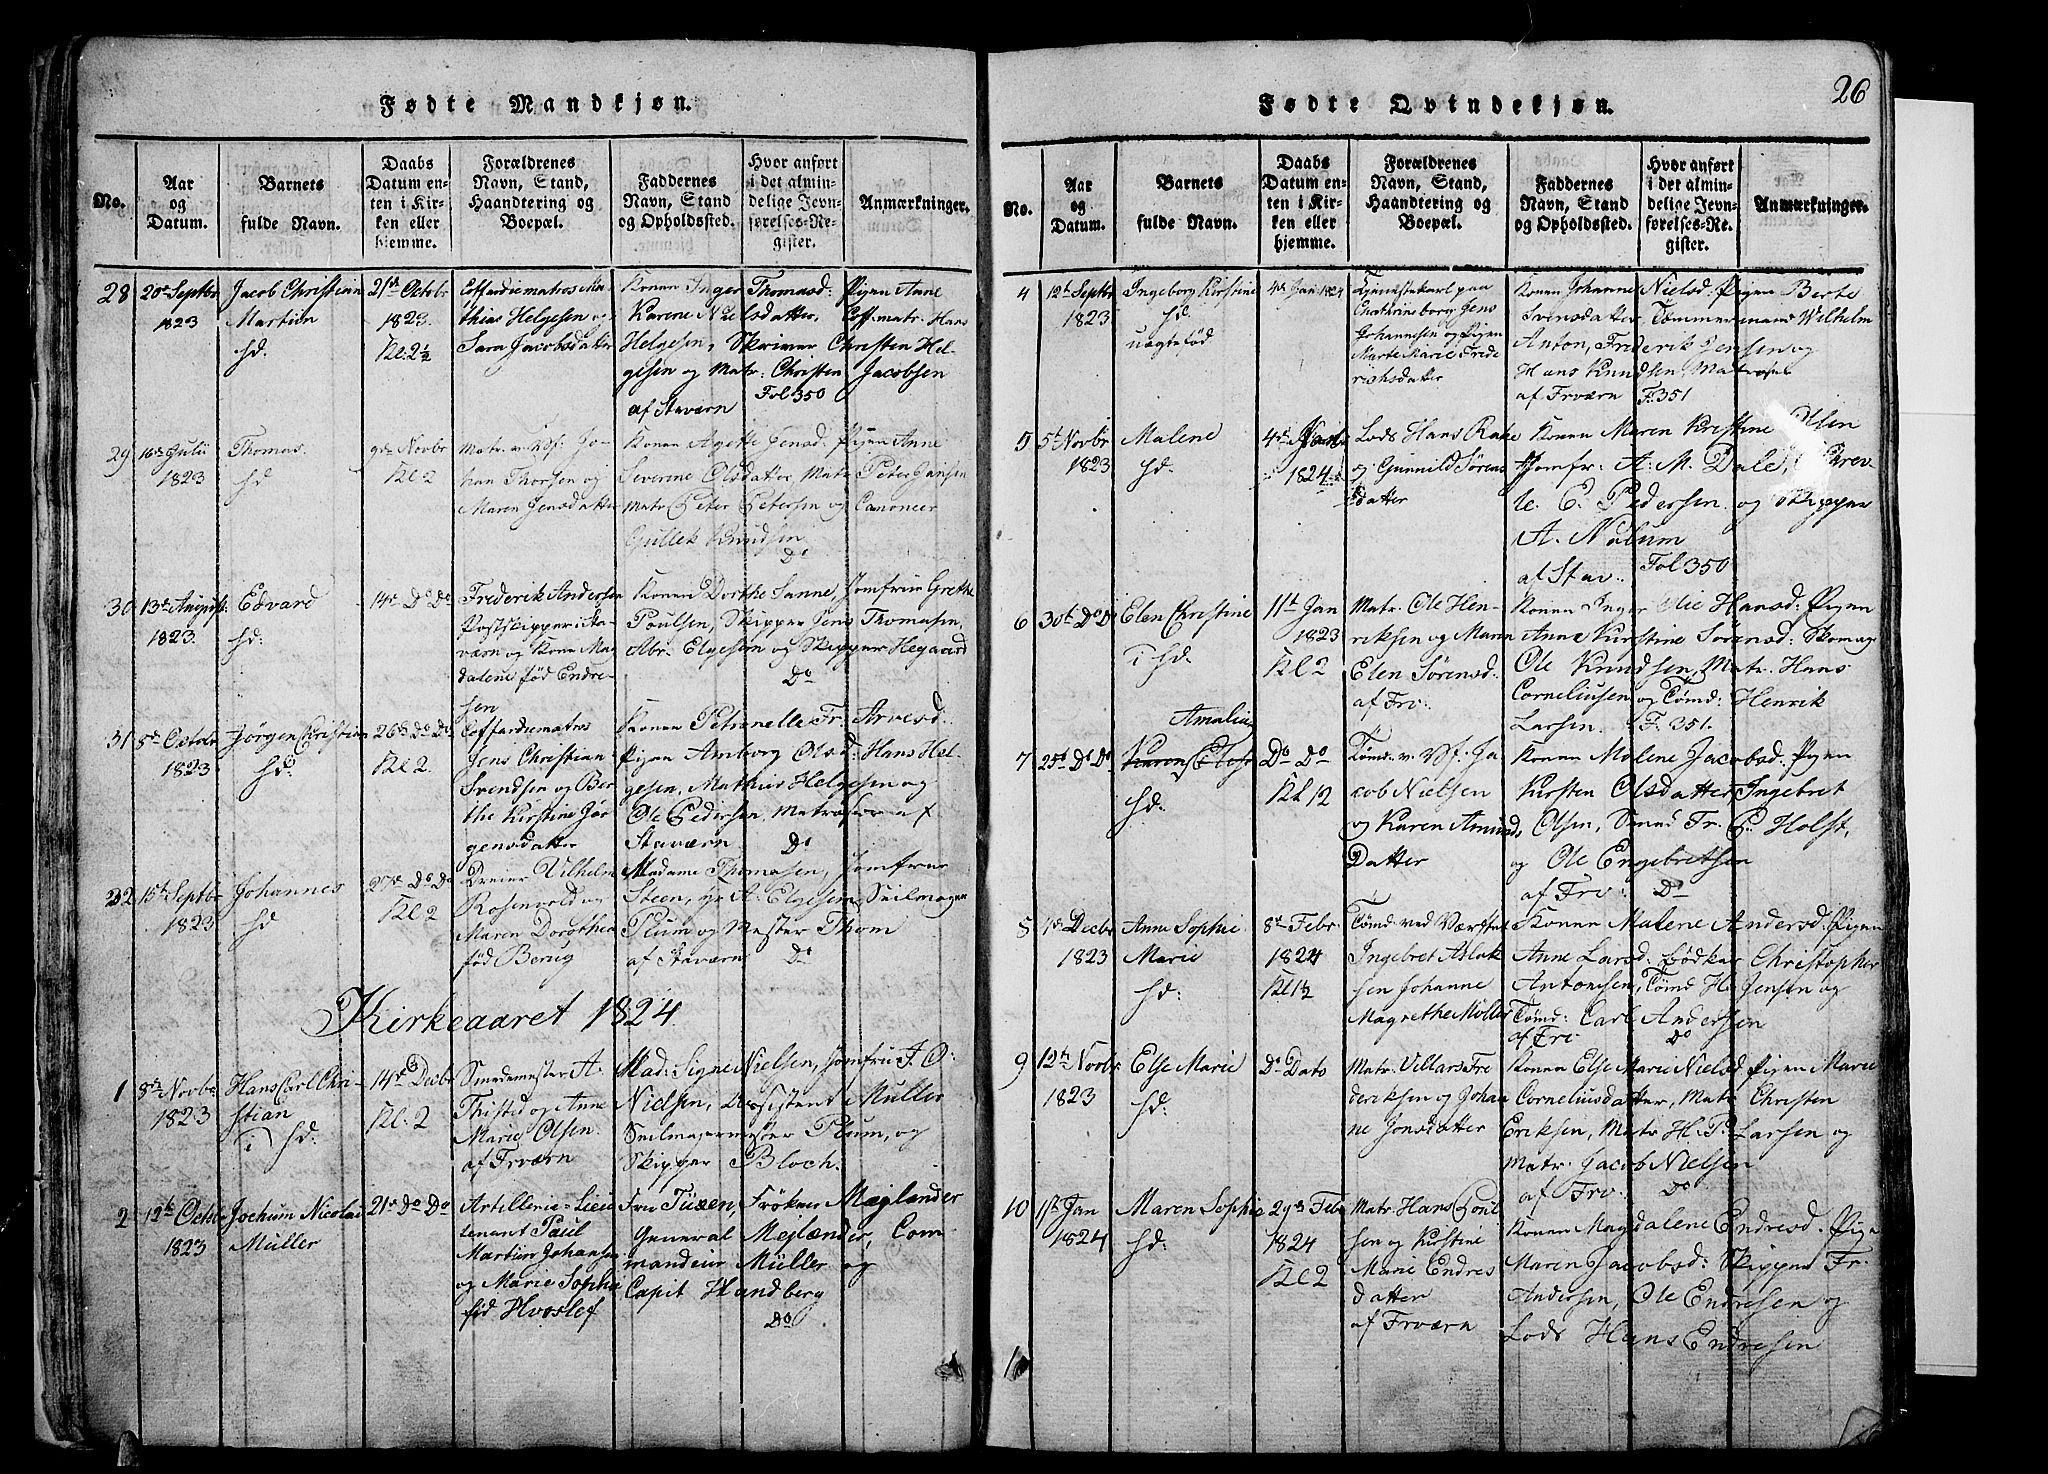 Fødte Mandkjøn.
No.
Aar
og
Datum.
Barnets
fulde Navn.
Daabs
Datum en-
ten i Kir-
ken eller
hjemme.
Forældrenes
Navn, Stand,
Haandtering og
Boepæl.
Faddernes
Navn, Stand
og Opholdssted.
Hvor anført
i det almin-
delige Jevn-
førelses-Re-
gister.
Anmærkninger.
28
20de Septbr
1823
Jacob Christian
Martin
hd.
21de Octobr
1823.
Kl. 2½
Coffardiematros Ma-
thias Helgesen og
Sara Jacobsdatter
Konen Inger Thomasd: Pigen Anne
Karene Nielsdatter, Coff. matr. Hans
Helgesen, Skriver Christen Hel-
gesen og Matr: Christen Jacobsen
af Staværn Fol 350
29
16de Julii
1823
Thomas
hd
9de Novbr
Kl 2
Matr. v. Vf: Jo-
han Thorsen og
Maren Jensdatter
Konen Agethe Jensd: Pigen Anne
Severine Olsdatter, Matr Peter Jansen
Matr Peter Petersen og Canoneer
Gullek Knudsen
Do
30
13de August
1823.
Edvard
hd:
14de Do Do
Frederik Andersen
Postskipper i Sta-
værn og Kone Mag
dalene fød Endre-
sen
Konen Dorthe Sanne, Jomfrue Grethe
Poulsen, Skipper Jens Thomasen,
Abr. Elgesem og Skipper Hegaard
Do
31
5de Octobr
1823
Jørgen Christian
hd:
26de Do Do
Kl 2.
Coffardiematros
Jens Christian
Svendsen og Ber
the Kirstine Jør
gensdatter
Konen Petronelle Fr: Arvesd:
Pigen Amborg Olsd: Hans Hel-
gesen, Mathias Helgesen og
Ole Pedersen, Matroser af
Staværn Do
32
15de Septbr
1823
Johannes
hd
27de Do Do
Kl 2
Dreier Vilhelm
Rosenvold og
Maren Dorothea
fød Berug
Madame Thomasen, Jomfrue
Steen, A. Elgesem Seilmager
Plum og Mester Thom
af Staværn Do
Kirkeaaret 1824
1
8de Novbr
1823
Hans Carl Chri-
stian
i hd:
14de Decbr
Kl: 2
Smedemester A.
Thisted og Anne
Marie Olsen.
af Frværn
Mad: Signe Nielsen, Jomfru A. O:
Nielsen, Assistent Müller
Seilmagermester Plum, og
Skipper Bloch.
2
12te Octobr
1823
Jochum Nicolai
Müller
21de Do Do
Artillerie-Lieu
tenant Paul
Martin Johansen
og Marie Sophie
fød Hvoslef
Frue Tüxen, Frøken Mejlænder
General Mejlænder, Com
mandeur Müller og
Capit Handberg
Do
Fødte Qvindekjøn.
26
No.
Aar
og
Datum.
Barnets
fulde Navn.
Daabs
Datum en-
ten i Kir-
ken eller
hjemme.
Forældrenes
Navn, Stand,
Haandtering og
Boepæl.
Faddernes
Navn, Stand,
og Opholdssted.
Hvor anført
i det almin-
delige Jevn-
førelses-Re-
gister.
Anmærkninger.
4
12te Septbr
1823
Ingeborg Kirstine
hd.
uægtefød
4de Jan: 1824
Tjenestekarl paa
Cathrineborg Jens
Johannesen og Pigen
Marte Marie Fride
richsdatter
Konen Johanne Nielsd: Pigen Berte
Svensdatter, Tømmermand Wilhelm
Anton, Frederik Jensen og
Hans Knudsen, Matroser
af Frværn F: 351
5
5te Novbr
1823
Malene
hd:
4de
1824
Lods Hans Rake
og Gunnild Sørens
datter
Konen Maren Kirstine Olsen
Jomfr: A. M. Dale,
E. Pedersen og Skipper
A. Nalum
af Stav.. Fol 350
6
30te Do Do
Elen Christine
i hd:
11te Jan
1823
Kl 2
Matr: Ole Hen-
riksen og Maren
Elen Sørensd.
af Frv:
Konen Inger Olie Hansd: Pigen
Anne Kirstine Sørensd: Skomag
Ole Knudsen, Matr. Hans
Corneliusen og Tømd: Henrik
Larsen. F. 351.
7
25de Do Do
Amalia
hd:
Do Do
Kl 12
Tømd. v. Vf: Ja
cob Nielsen
og Karen Amund
Datter
Konen Malene Jacobsd: Pigen
Kirsten Olsdatter Ingebret
Olsen, Smed Fr. C. Holst,
og Ole Engebretsen
af Frv: Do
5
4de Decbr
1823
Anne Sophie
Marie
hd:
8de Febr.
1824
Kl 1½
Tømd ved Værftet
Ingebret Aslak
sen Johanne
Magrethe Møller
Konen Malene Andersd: Pigen
Anne Larsd: Bødker Christopher
Antonsen, Tømd H. Jensen og
Tømd: Carl Andersen
af Frv Do
9
12te Novbr
1823
Else Marie
hd:
Do Dato
Matr: Villars Fre
deriksen og Johan
ne Jonsdatter
Konen Else Marie Nielsd Pigen Marie
Corneliusdatter, Matr Christen
Eriksen, Matr H. P. Larsen og
Matr: Jacob Nielsen
af Frv: Do
10
1ste Jan
1824
Maren Sophie
hd:
29de Feb
1824
Kl 2
Matr Hans Poul
sen og Kirstine
Marie Endres
datter
af Frværn
Konen Magdalene Endresd. Pigen
Maren Jacobsd: Skipper Fr.
Andersen, Ole Endresen og
Lods Hans Endresen